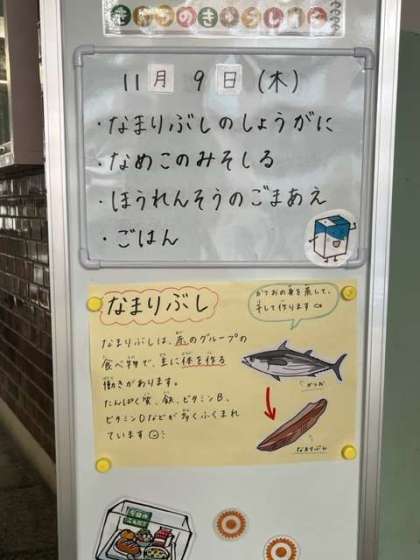 きょうのきゅうしょく
11月 9日 (木)
・なまりぶしのしょうがに
・なめこのみそしる
・ほうれんそうのごまあえ
・ごはん
なまりぶし
かつおの身を蒸して、
干して作ります
なまりぶしは、赤のグループの
食べ物で、主に体を作る
働きがあります。
たんぱく質、鉄、ビタミンB、
ビタミンDなどが多くふくまれ
ています
かつお
なまりぶし